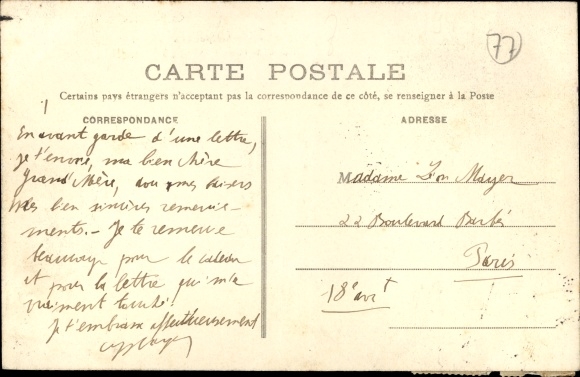 77
CARTE POSTALE
Certains pays étrangers n'acceptant pas la correspondance de ce côté, se renseigner à la Poste
CORRESPONDANCE
En avant garde d'une lettre,
je t'envoie, ma bien chère
Grand'Mère, mes baisers
Mes bien sincères remercie-
ments. - Je te remercie
beaucoup pour le cadeau
et pour la lettre qui m'a
vraiment touché.
Je t'embrasse affectueusement
ADRESSE
Madame Léon Mayer
22 Boulevard Barbès
Paris
18e arrt